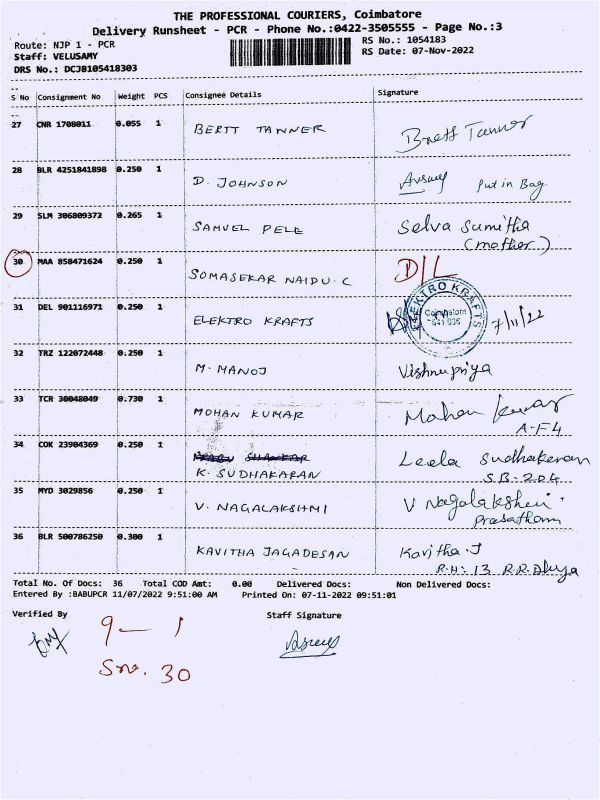 THE PROFESSIONAL COURIERS, Coimbatore
Delivery Runsheet - PCR - Phone No.:0422-3505555 - Page No.:3
Route: NJP 1 - PCR
RS No.: 1054183
Staff: VELUSAMY
RS Date: 07-Nov-2022
DRS No.: DCJB105418303
S No Consignment No Weight PCS Consignee Details Signature
27 CNR 1708011 0.055 1 BERTT TANNER Brett Tanner
28 BLR 4251841898 0.250 1 D. JOHNSON Put in Bag
29 SLM 306809372 0.265 1 SAMVEL PELE Selva Sumitha
(mother)
30 MAA 858471624 0.250 1 SOMASEKAR NAIDU. C D/L
31 DEL 901116971 0.250 1 ELEKTRO KRAFTS ELEKTRO KRAFTS Coimbatore 7/11/22
32 TRZ 122072448 0.250 1 M. MANOJ Vishnupriya
33 TCR 30048049 0.730 1 MOHAN KUMAR Mohan Kumar
A-F4
34 COK 23904369 0.250 1 K. SUDHAKARAN Leela Sudhakeran
SB-204
35 MYD 3029856 0.250 1 V. NAGALAKSHMI V Nagalakshmi
Prasatham
36 BLR 500786250 0.300 1 KAVITHA JAGADESAN Kavitha.J
R.H: 13 R.R.
Total No. Of Docs: 36 Total COD Amt: 0.00 Delivered Docs: Non Delivered Docs:
Entered By :BABUPCR 11/07/2022 9:51:00 AM Printed On: 07-11-2022 09:51:01
Verified By Staff Signature
9 - 1
Sno. 30